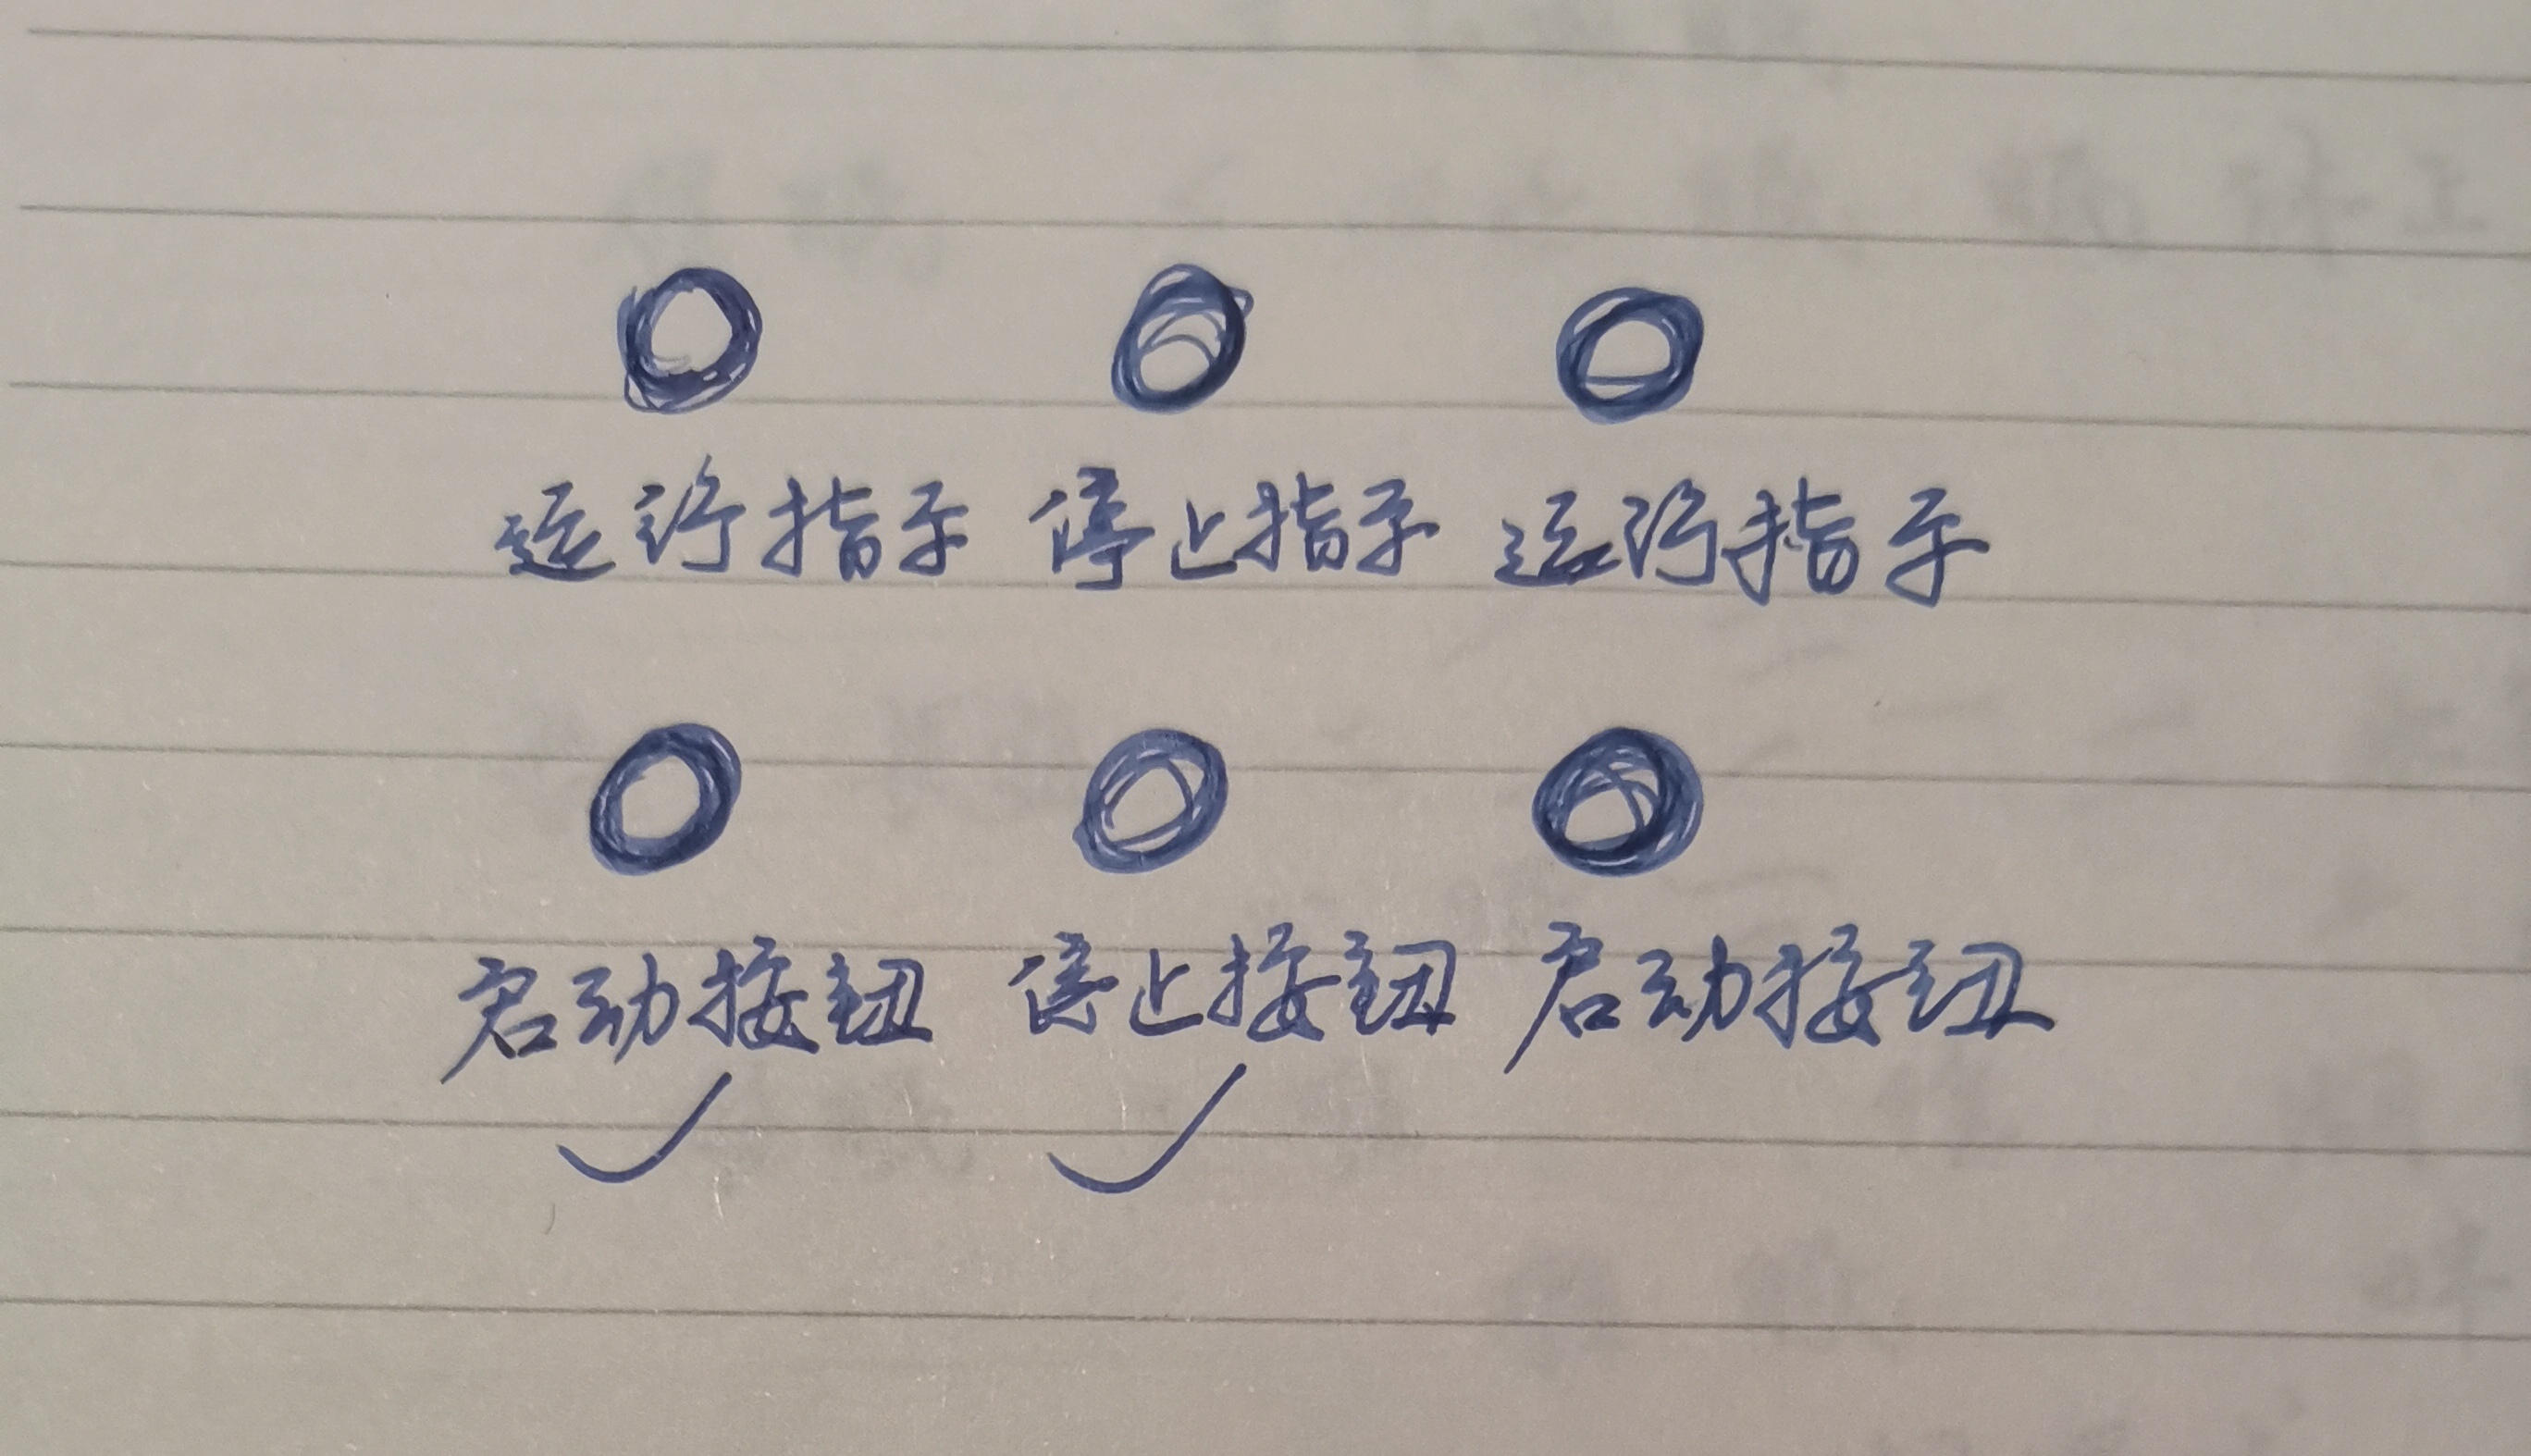 运行指示 停止指示 运行指示
启动按钮 停止按钮 启动按钮